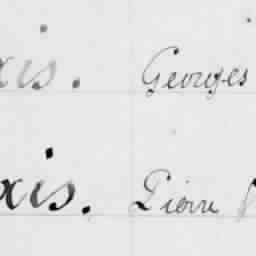 xis. Georges
xis. Pierre